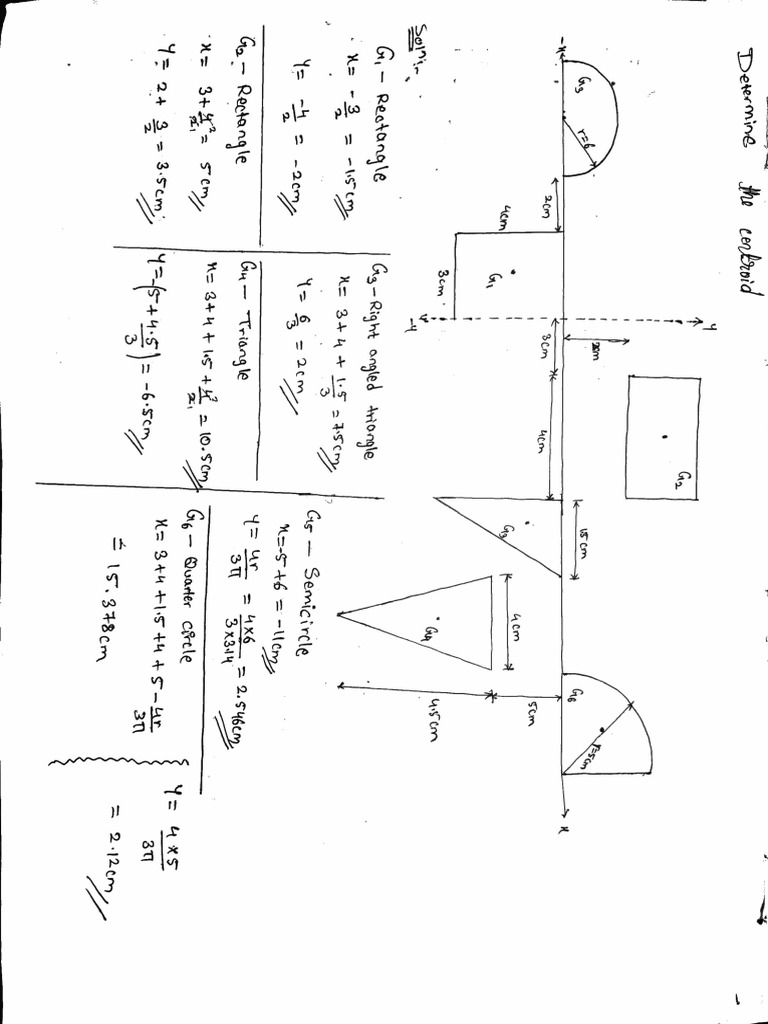 Determine the centroid
G3
r=6
-x
2cm
4cm
3cm
G1
y
-y
3cm
4cm
G2
G3
15cm
4cm
G4
4.5cm
5cm
G6
r=5cm
x
Soln:-
G1 - Rectangle
x = -3/2 = -1.5cm
y = -4/2 = -2cm
G2 - Rectangle
x = 3 + 4/2 = 5cm
y = 2 + 3/2 = 3.5cm
G3 - Right angled triangle
x = 3+4+1.5/3 = 7.5cm
y = 6/3 = 2cm
G4 - Triangle
x = 3+4+1.5+4/2 = 10.5cm
y = -(5+4.5/3) = -6.5cm
G5 - Semicircle
x = -5+6 = -11cm
y = 4r/3π = 4×6/3×3.14 = 2.546cm
G6 - Quarter circle
x = 3+4+1.5+4+5-4r/3π
= 15.378cm
y = 4×5/3π
= 2.12cm